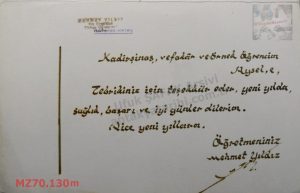 Kadirşinaş, vefakâr ve Örnek Öğrencim
Aysel,e,
Tebrikiniz için teşekkür eder, yeni yılda,
sağlık, başarı ve iyi günler dilerim.
Nice yeni yıllara.
Öğretmeniniz
mehmet yıldız
MZ70.130m